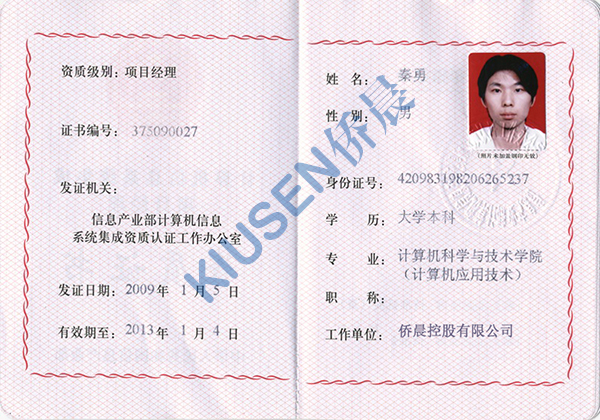 资质级别：项目经理
证书编号：375090027
发证机关：
信息产业部计算机信息
系统集成资质认证工作办公室
发证日期：2009年 1月 5日
有效期至：2013年 1月 4日
姓 名：秦勇
性 别：男
(照片未加盖钢印无效)
身份证号：420983198206265237
学 历：大学本科
专 业：计算机科学与技术学院
（计算机应用技术）
职 称：
工作单位：侨晨控股有限公司
KIUSEN侨晨